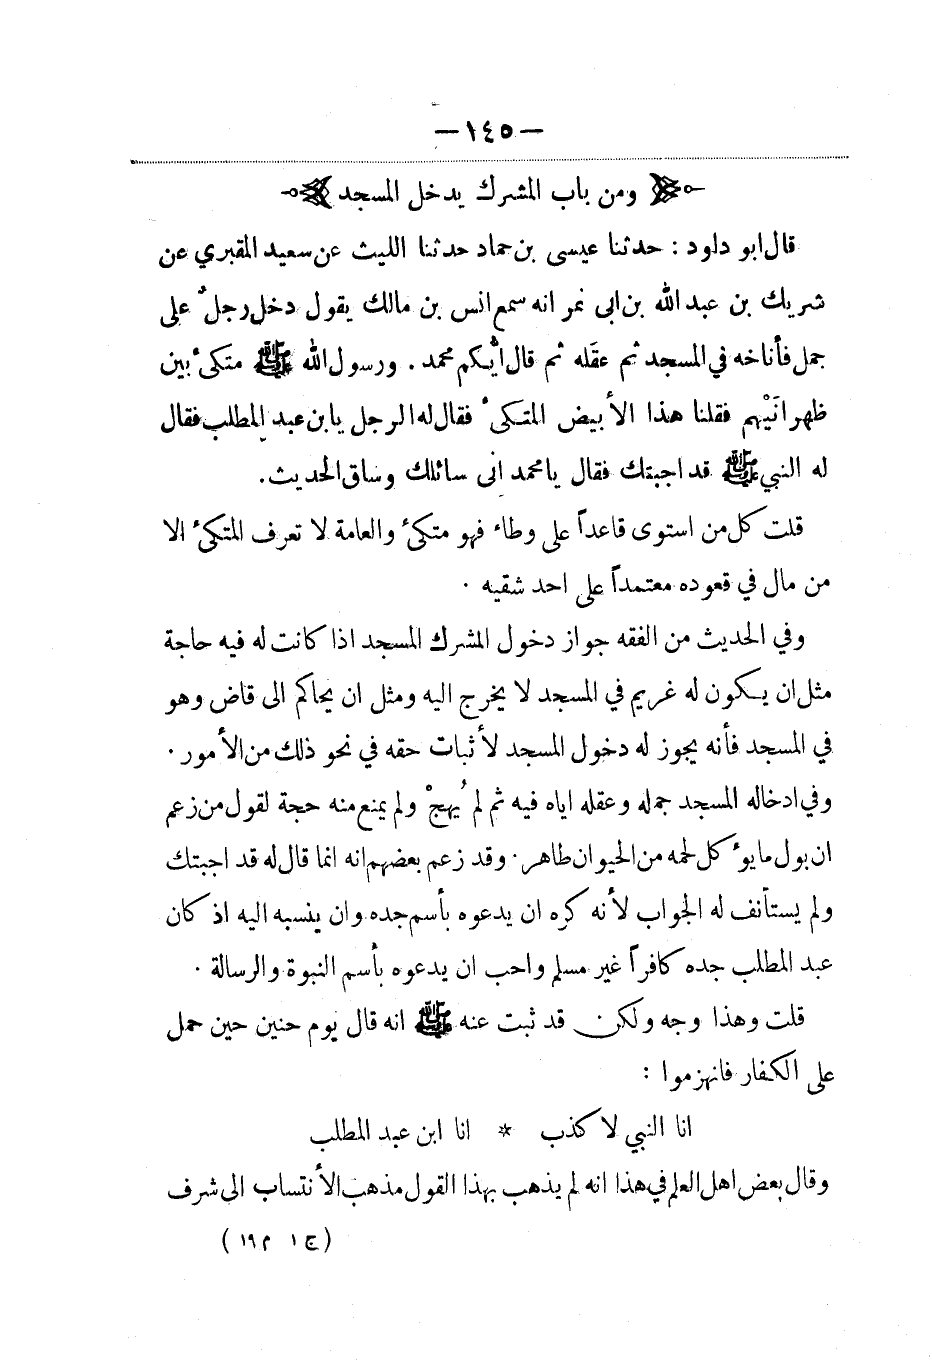 —١٤٥—
ومن باب المشرك يدخل المسجد
قال ابو داود : حدثنا عيسى بن حماد حدثنا الليث عن سعيد المقبري عن
شريك بن عبد الله بن ابى نمر انه سمع انس بن مالك يقول دخل رجلٌ على
جمل فأناخه في المسجد ثم عقَله ثم قال أيُّكم محمد . ورسول الله ﷺ متكئٌ بين
ظهرانَيْهم فقلنا هذا الأبيض المتكئُ فقال له الرجل يا بن عبد المطلب فقال
له النبي ﷺ قد اجبتك فقال يا محمد انى سائلك وساق الحديث .
قلت كل من استوى قاعداً على وطاء فهو متكئ والعامة لا تعرف المتكئ الا
من مال في قعوده معتمداً على احد شقيه .
وفي الحديث من الفقه جواز دخول المشرك المسجد اذا كانت له فيه حاجة
مثل ان يكون له غريم في المسجد لا يخرج اليه ومثل ان يحاكم الى قاض وهو
في المسجد فأنه يجوز له دخول المسجد لأثبات حقه في نحو ذلك من الأمور .
وفي ادخاله المسجد جمله وعقله اياه فيه ثم لم يُهجْ ولم يمنع منه حجة لقول من زعم
ان بول ما يؤكل لحمه من الحيوان طاهر . وقد زعم بعضهم انه انما قال له قد اجبتك
ولم يستأنف له الجواب لأنه كره ان يدعوه بأسم جده وان ينسبه اليه اذ كان
عبد المطلب جده كافراً غير مسلم واحب ان يدعوه بأسم النبوة والرسالة .
قلت وهذا وجه ولكن قد ثبت عنه ﷺ انه قال يوم حنين حين حمل
على الكفار فانهزموا :
انا النبي لا كذب * انا ابن عبد المطلب
وقال بعض اهل العلم في هذا انه لم يذهب بهذا القول مذهب الأنتساب الى شرف
( ج ١ م ١٩ )